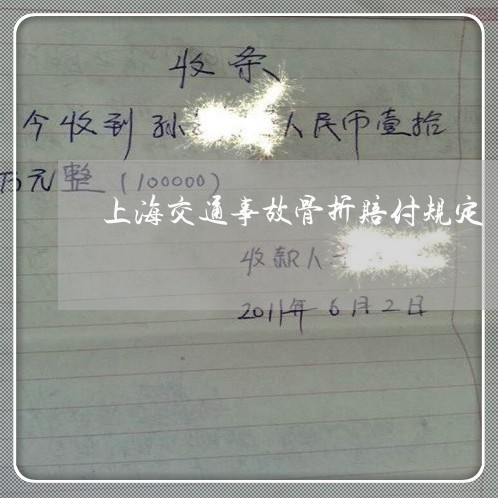 收条
今收到孙 人民币壹拾
万元整（100000）
上海交通事故骨折赔付规定
收款人
2011年6月2日